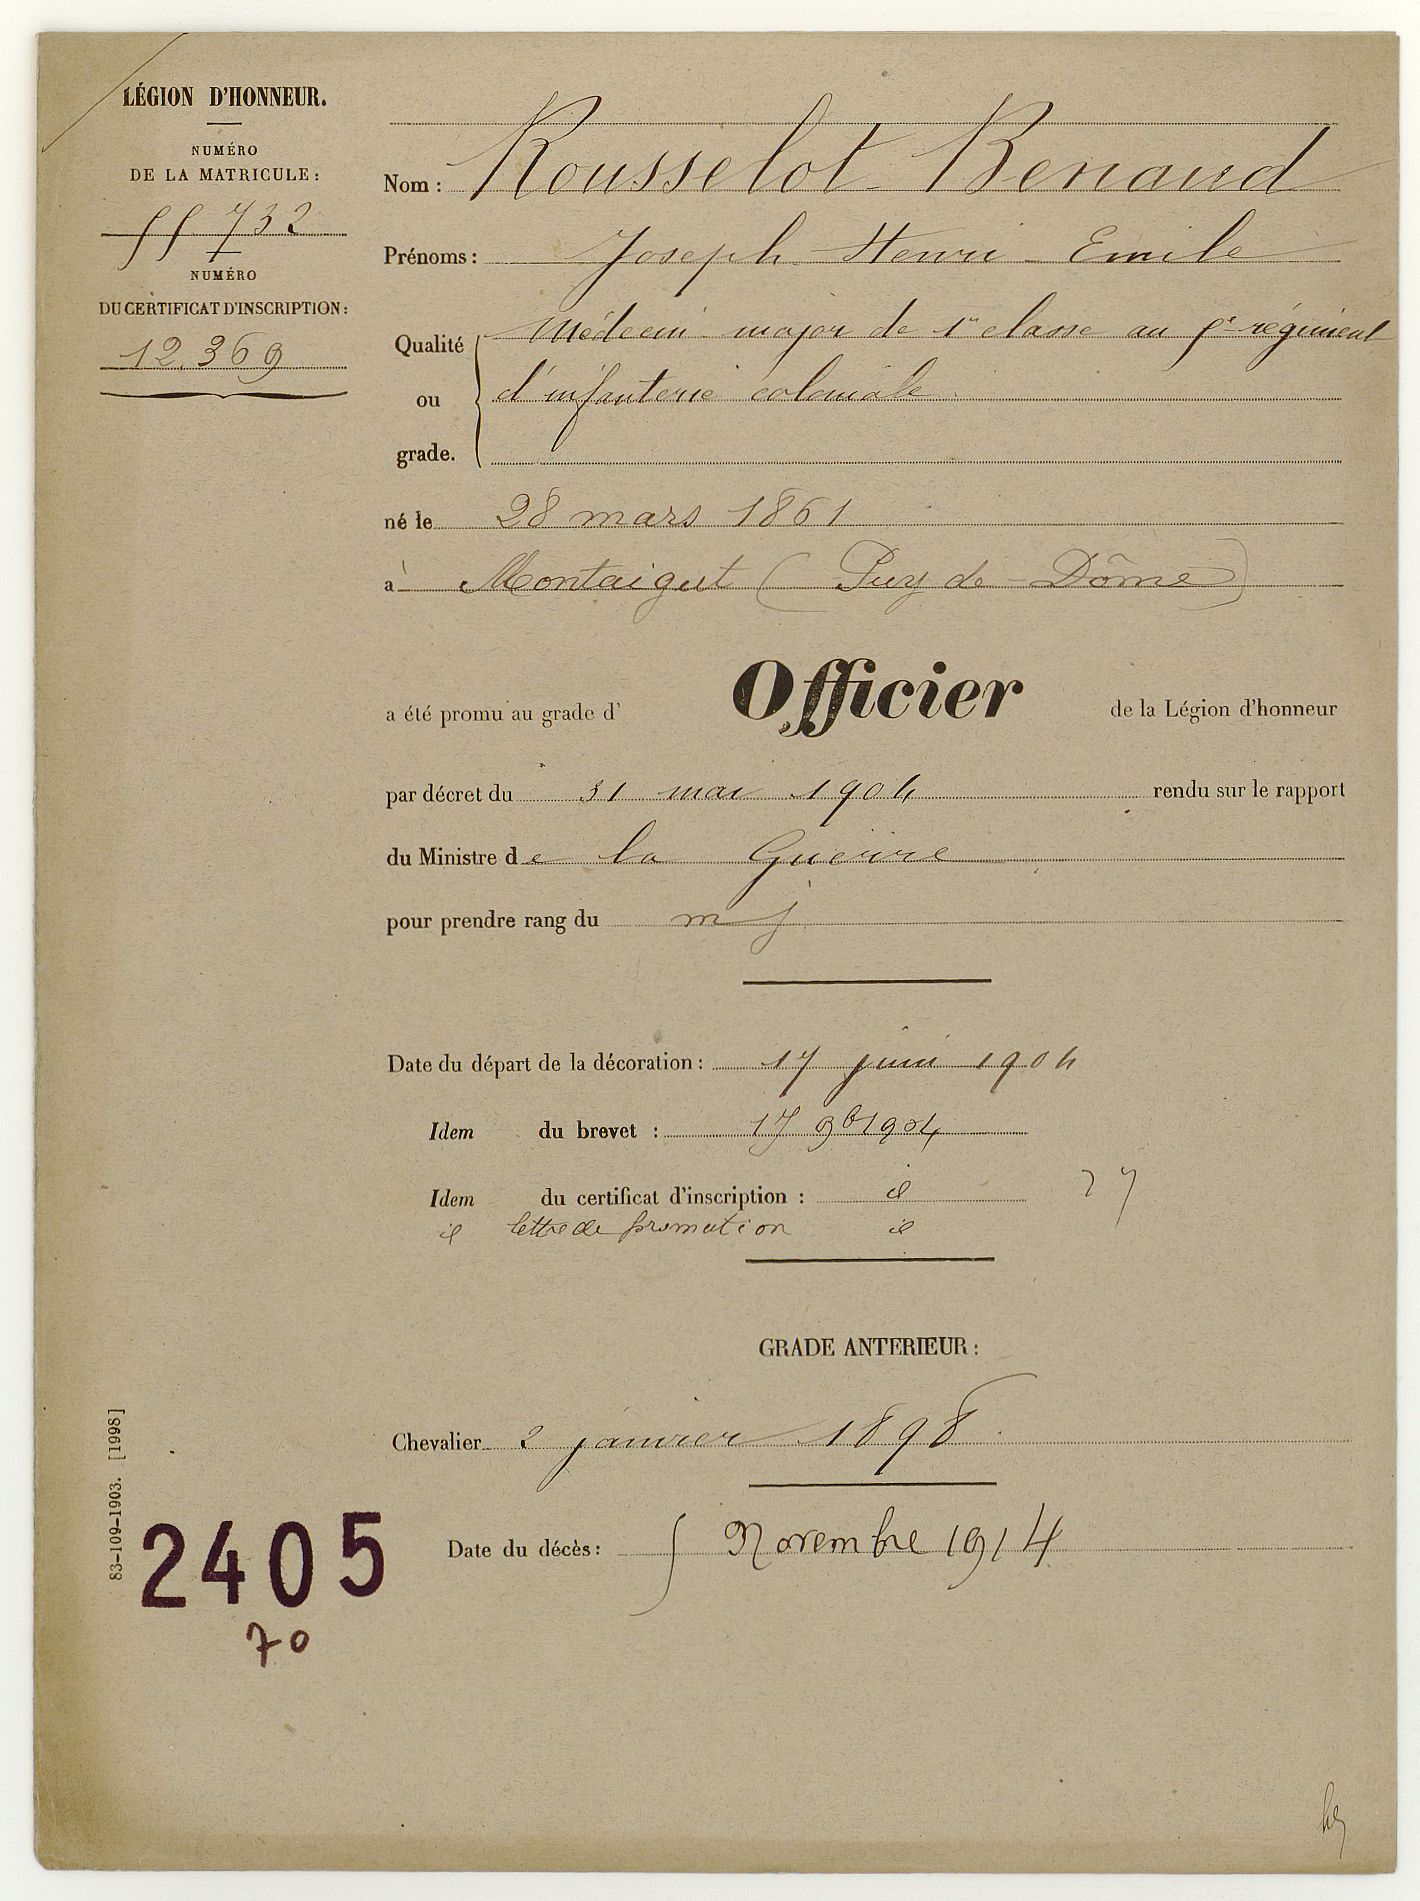 LÉGION D'HONNEUR.
NUMÉRO
DE LA MATRICULE:
55732
NUMÉRO
DU CERTIFICAT D'INSCRIPTION:
12.369
Nom: Rousselot Benaud
Prénoms: Joseph Henri Emile
Qualité ou grade. Médecin major de 1re classe au 5e régiment
d'infanterie coloniale
né le 28 mars 1861
à Montaigut (Puy de Dôme)
a été promu au grade d' Officier de la Légion d'honneur
par décret du 31 mai 1904 rendu sur le rapport
du Ministre de la Guerre
pour prendre rang du m j
Date du départ de la décoration: 17 juin 1904
Idem du brevet: 17 9b 1904
Idem du certificat d'inscription: id 77
id lettre de promotion id
GRADE ANTERIEUR:
Chevalier 2 janvier 1898
Date du décès: 5 Novembre 1914
83-109-1903. [1998]
2405
70